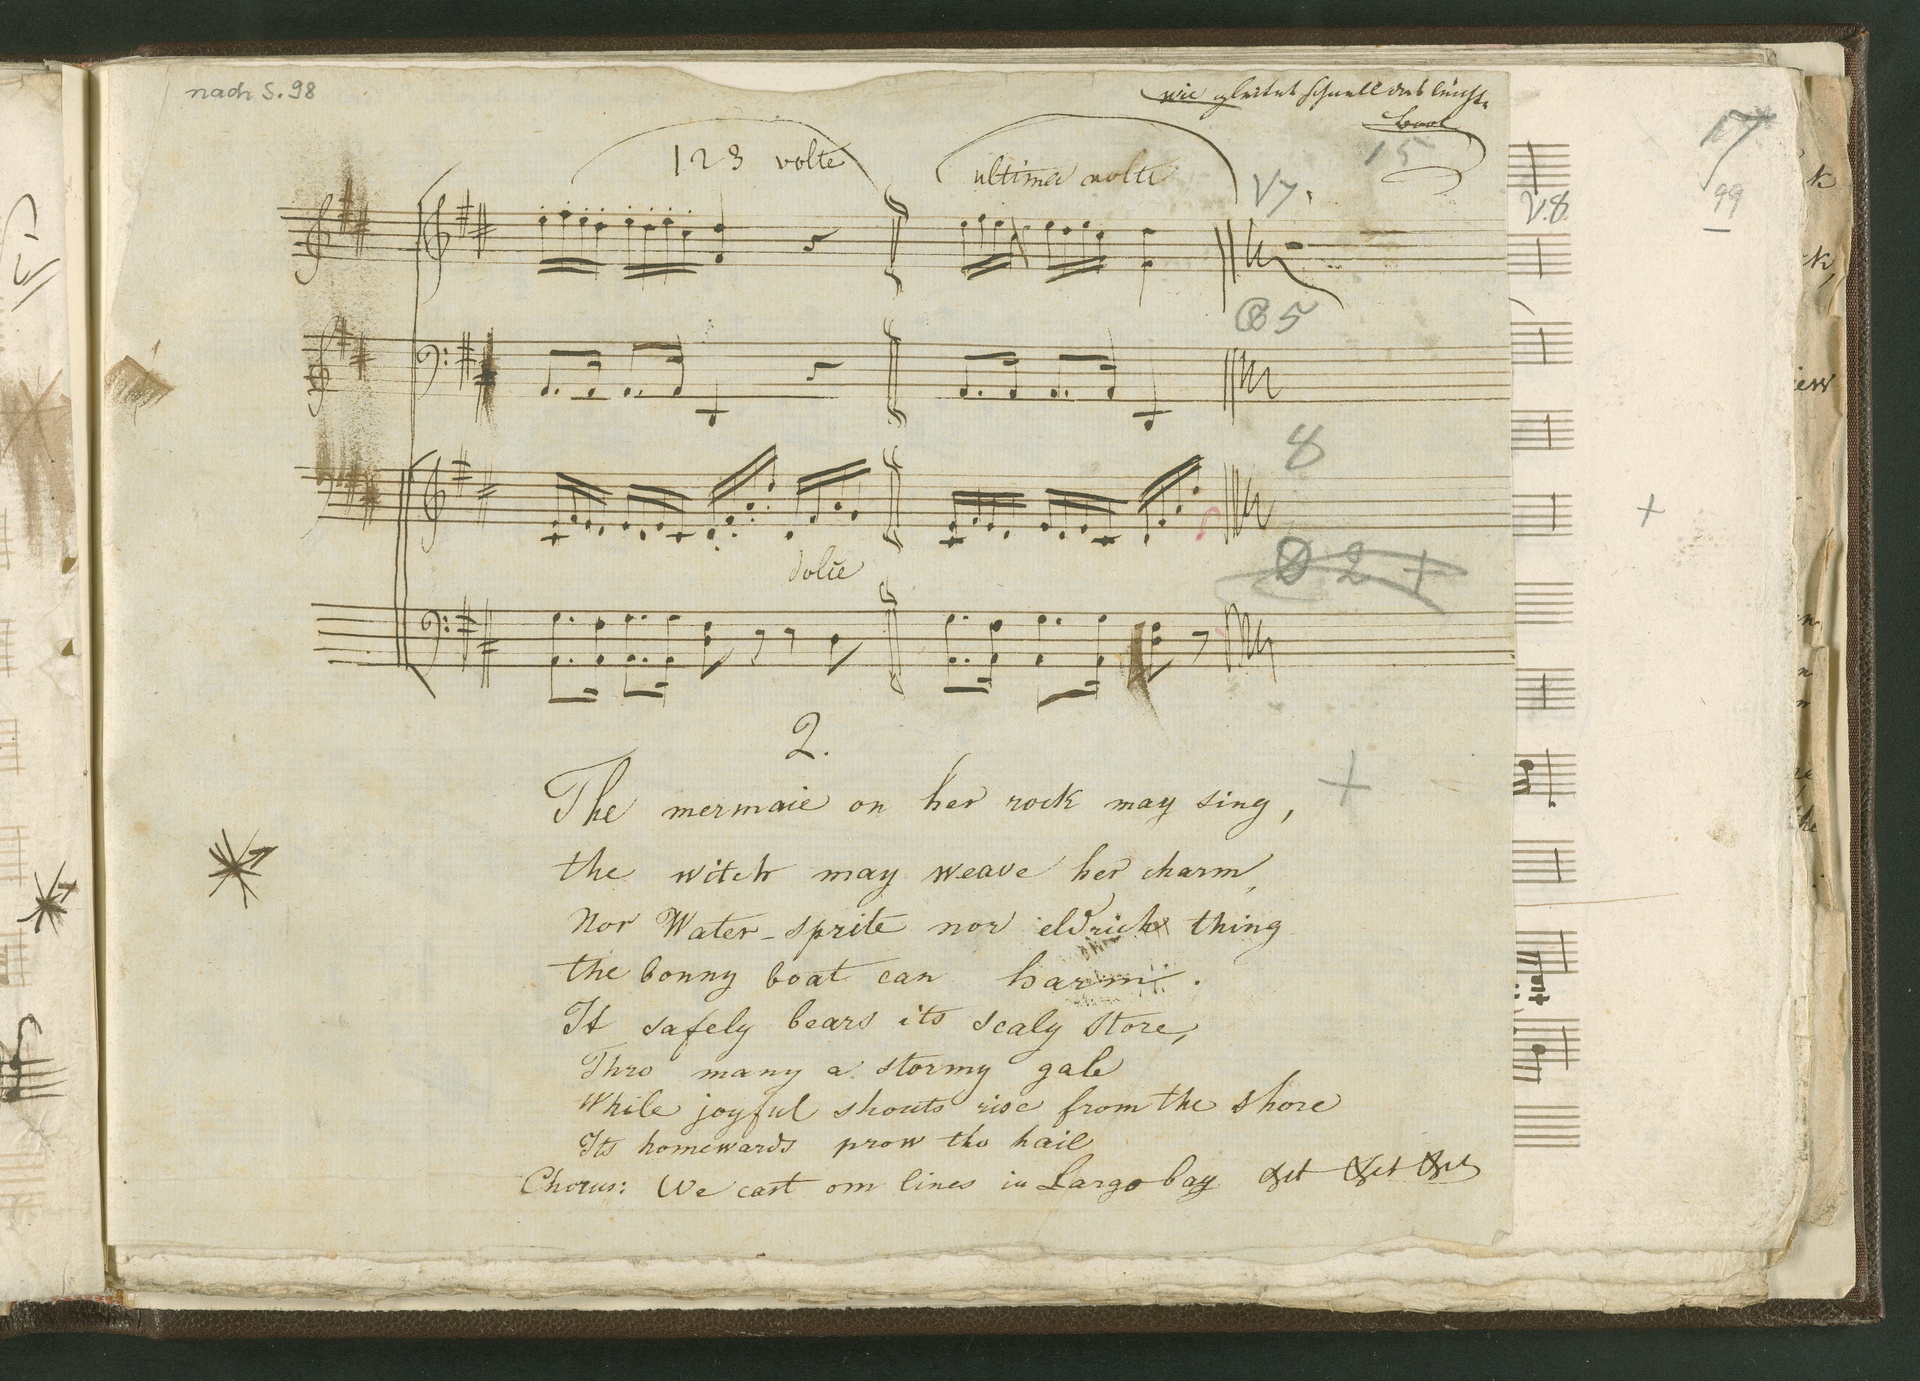 nach S. 98
wie gleitet schnell das leichte
Boot
15
17
99
1 2 3 volte
ultima volte
V7.
V.8.
5
8
2 +
dolce
2.
The mermaie on her rock may sing,
the witch may weave her charm,
Nor Water-sprite nor eldrich thing
the bonny boat can harm.
It safely bears its scaly store,
Thro many a stormy gale
While joyful shouts rise from the shore
Its homewards prow tho hail
Chorus: We cast om lines in Largo bay